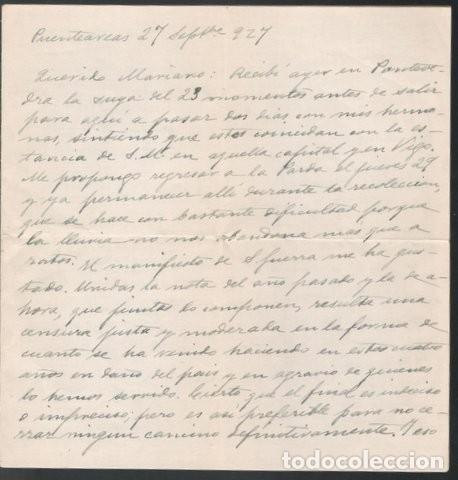 Puenteareas 27 Septbre 927
Querido Mariano: Recibí ayer en Ponteve-
dra la suya del 23 momentos antes de salir
para aquí a pasar dos días con mis herma-
nas, sintiendo que estos coincidan con la es-
tancia de S.M. en aquella capital y en Vigo.
Me propongo regresar a la Parda el jueves 29
y ya permanecer allí durante la recolección,
que se hace con bastante dificultad porque
la lluvia no nos abandona mas que a
ratos. El manifiesto de S. Guerra me ha gus-
tado. Unidas la nota del año pasado y la de a-
hora, que juntas se componen, resulta una
censura justa y moderada en la forma de
cuanto se ha venido haciendo en estos cuatro
años en daño del país y en agravio de quienes
lo hemos servido. Cierto que el final es indeciso
o impreciso; pero es así preferible para no ce-
rrar ningun camino definitivamente. Y eso
todocoleccion
todocoleccion.net